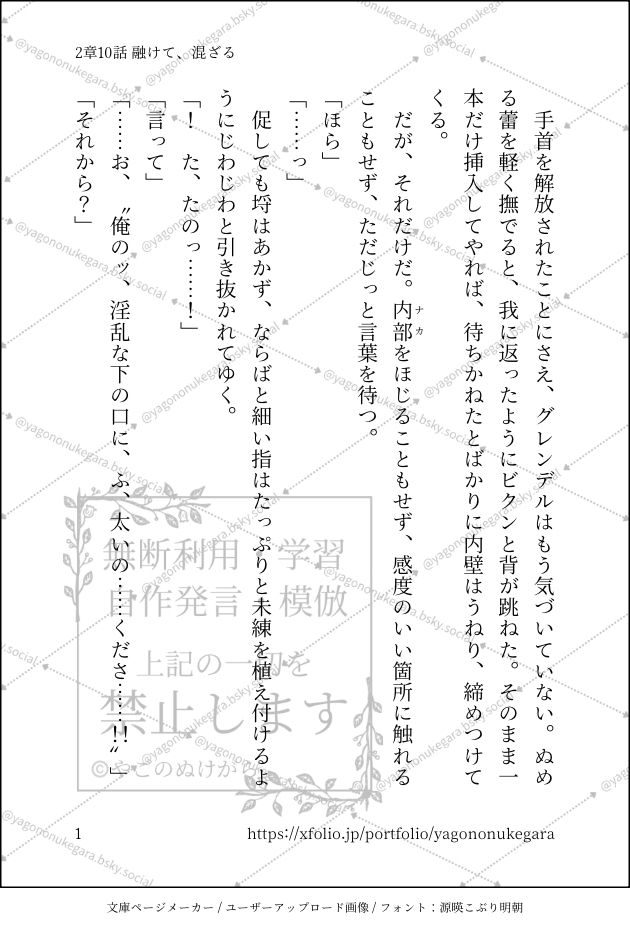 2章10話 融けて、混ざる
　手首を解放されたことにさえ、グレンデルはもう気づいていない。ぬめ
る蕾を軽く撫でると、我に返ったようにビクンと背が跳ねた。そのまま一
本だけ挿入してやれば、待ちかねたとばかりに内壁はうねり、締めつけて
くる。
　だが、それだけだ。内部をほじることもせず、感度のいい箇所に触れる
ナカ
こともせず、ただじっと言葉を待つ。
「ほら」
「……っ」
　促しても埒はあかず、ならばと細い指はたっぷりと未練を植え付けるよ
うにじわじわと引き抜かれてゆく。
「！　た、たのっ……！」
「言って」
「……お、〝俺のッ、淫乱な下の口に、ふ、太いの……くださ……!!〟」
「それから？」
無断利用・学習
自作発言・模倣
上記の一切を
禁止します
©やこのぬけか
@yagononukegara.bsky.social
1
https://xfolio.jp/portfolio/yagononukegara
文庫ページメーカー / ユーザーアップロード画像 / フォント：源暎こぶり明朝